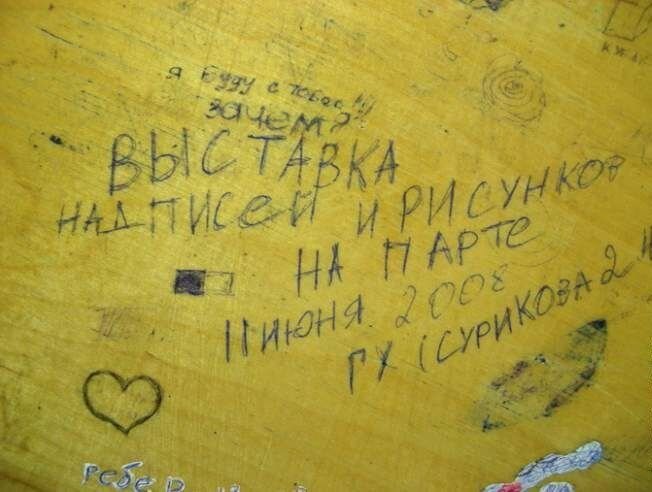 я буду с тобой!!!
зачем?
ВЫСТАВКА
НАДПИСЕЙ И РИСУНКОВ
НА ПАРТЕ
11 ИЮНЯ 2008
ГХ (СУРИКОВА 2